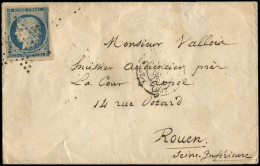 Monsieur Vallois
huissier Audiencier près
La Cour appel
14 rue
Rouen
Seine Inférieure